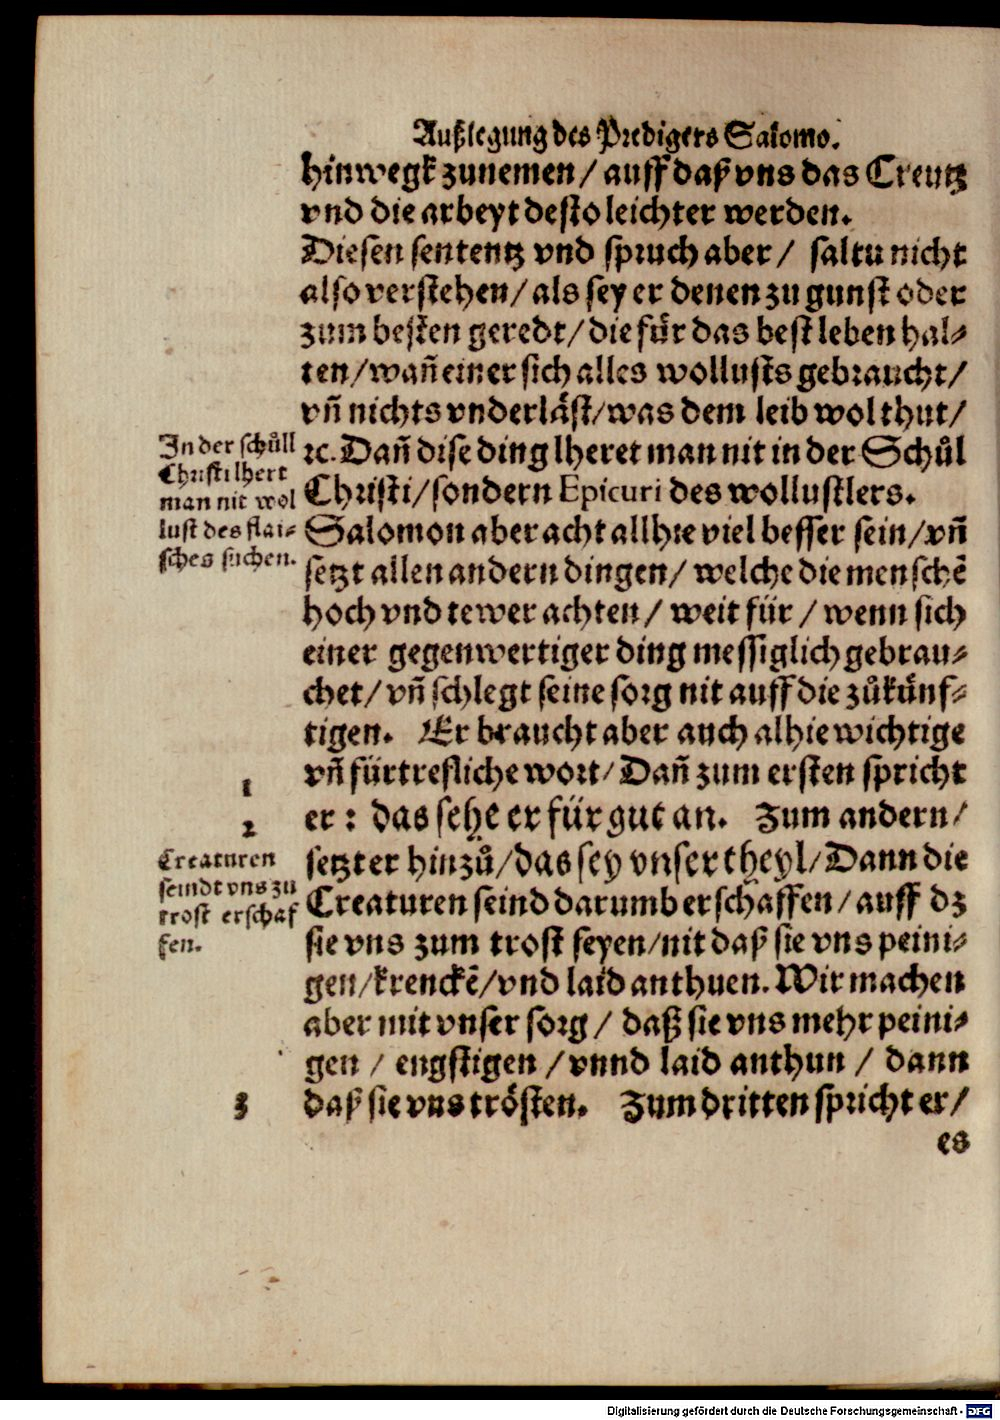 Außlegung des Predigers Salomo.
hinwegk zunemen / auff daß vns das Creutz
vnd die arbeyt desto leichter werden.
Diesen sententz vnd spruch aber / saltu nicht
also verstehen / als sey er denen zu gunst oder
zum besten geredt / die für das best leben hal⸗
ten / wañ einer sich alles wollusts gebraucht /
vñ nichts vnderläst / was dem leib wol thut /
ꝛc. Dañ dise ding lheret man nit in der Schůl
Christi / sondern Epicuri des wollustlers.
In der schůll
Christi lhert
man nit wol
lust des flai⸗
sches suchen.
Salomon aber acht allhie viel besser sein / vñ
setzt allen andern dingen / welche die menschē
hoch vnd tewer achten / weit für / wenn sich
einer gegenwertiger ding messiglich gebrau⸗
chet / vñ schlegt seine sorg nit auff die zůkünf⸗
tigen. Er braucht aber auch alhie wichtige
vñ fürtrefliche wort / Dañ zum ersten spricht
1
er : das sehe er für gut an. Zum andern /
2
setzt er hinzů / das sey vnser theyl / Dann die
Creaturen seind darumb erschaffen / auff dz
sie vns zum trost seyen / nit daß sie vns peini⸗
gen / krenckē / vnd laid anthuen. Wir machen
Creaturen
seindt vns zu
trost erschaf
fen.
aber mit vnser sorg / daß sie vns mehr peini⸗
gen / engstigen / vnnd laid anthun / dann
daß sie vns trösten. Zum dritten spricht er /
3
es
Digitalisierung gefördert durch die Deutsche Forschungsgemeinschaft - DFG